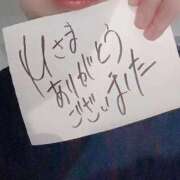 Mさま
ありがとう
ございました